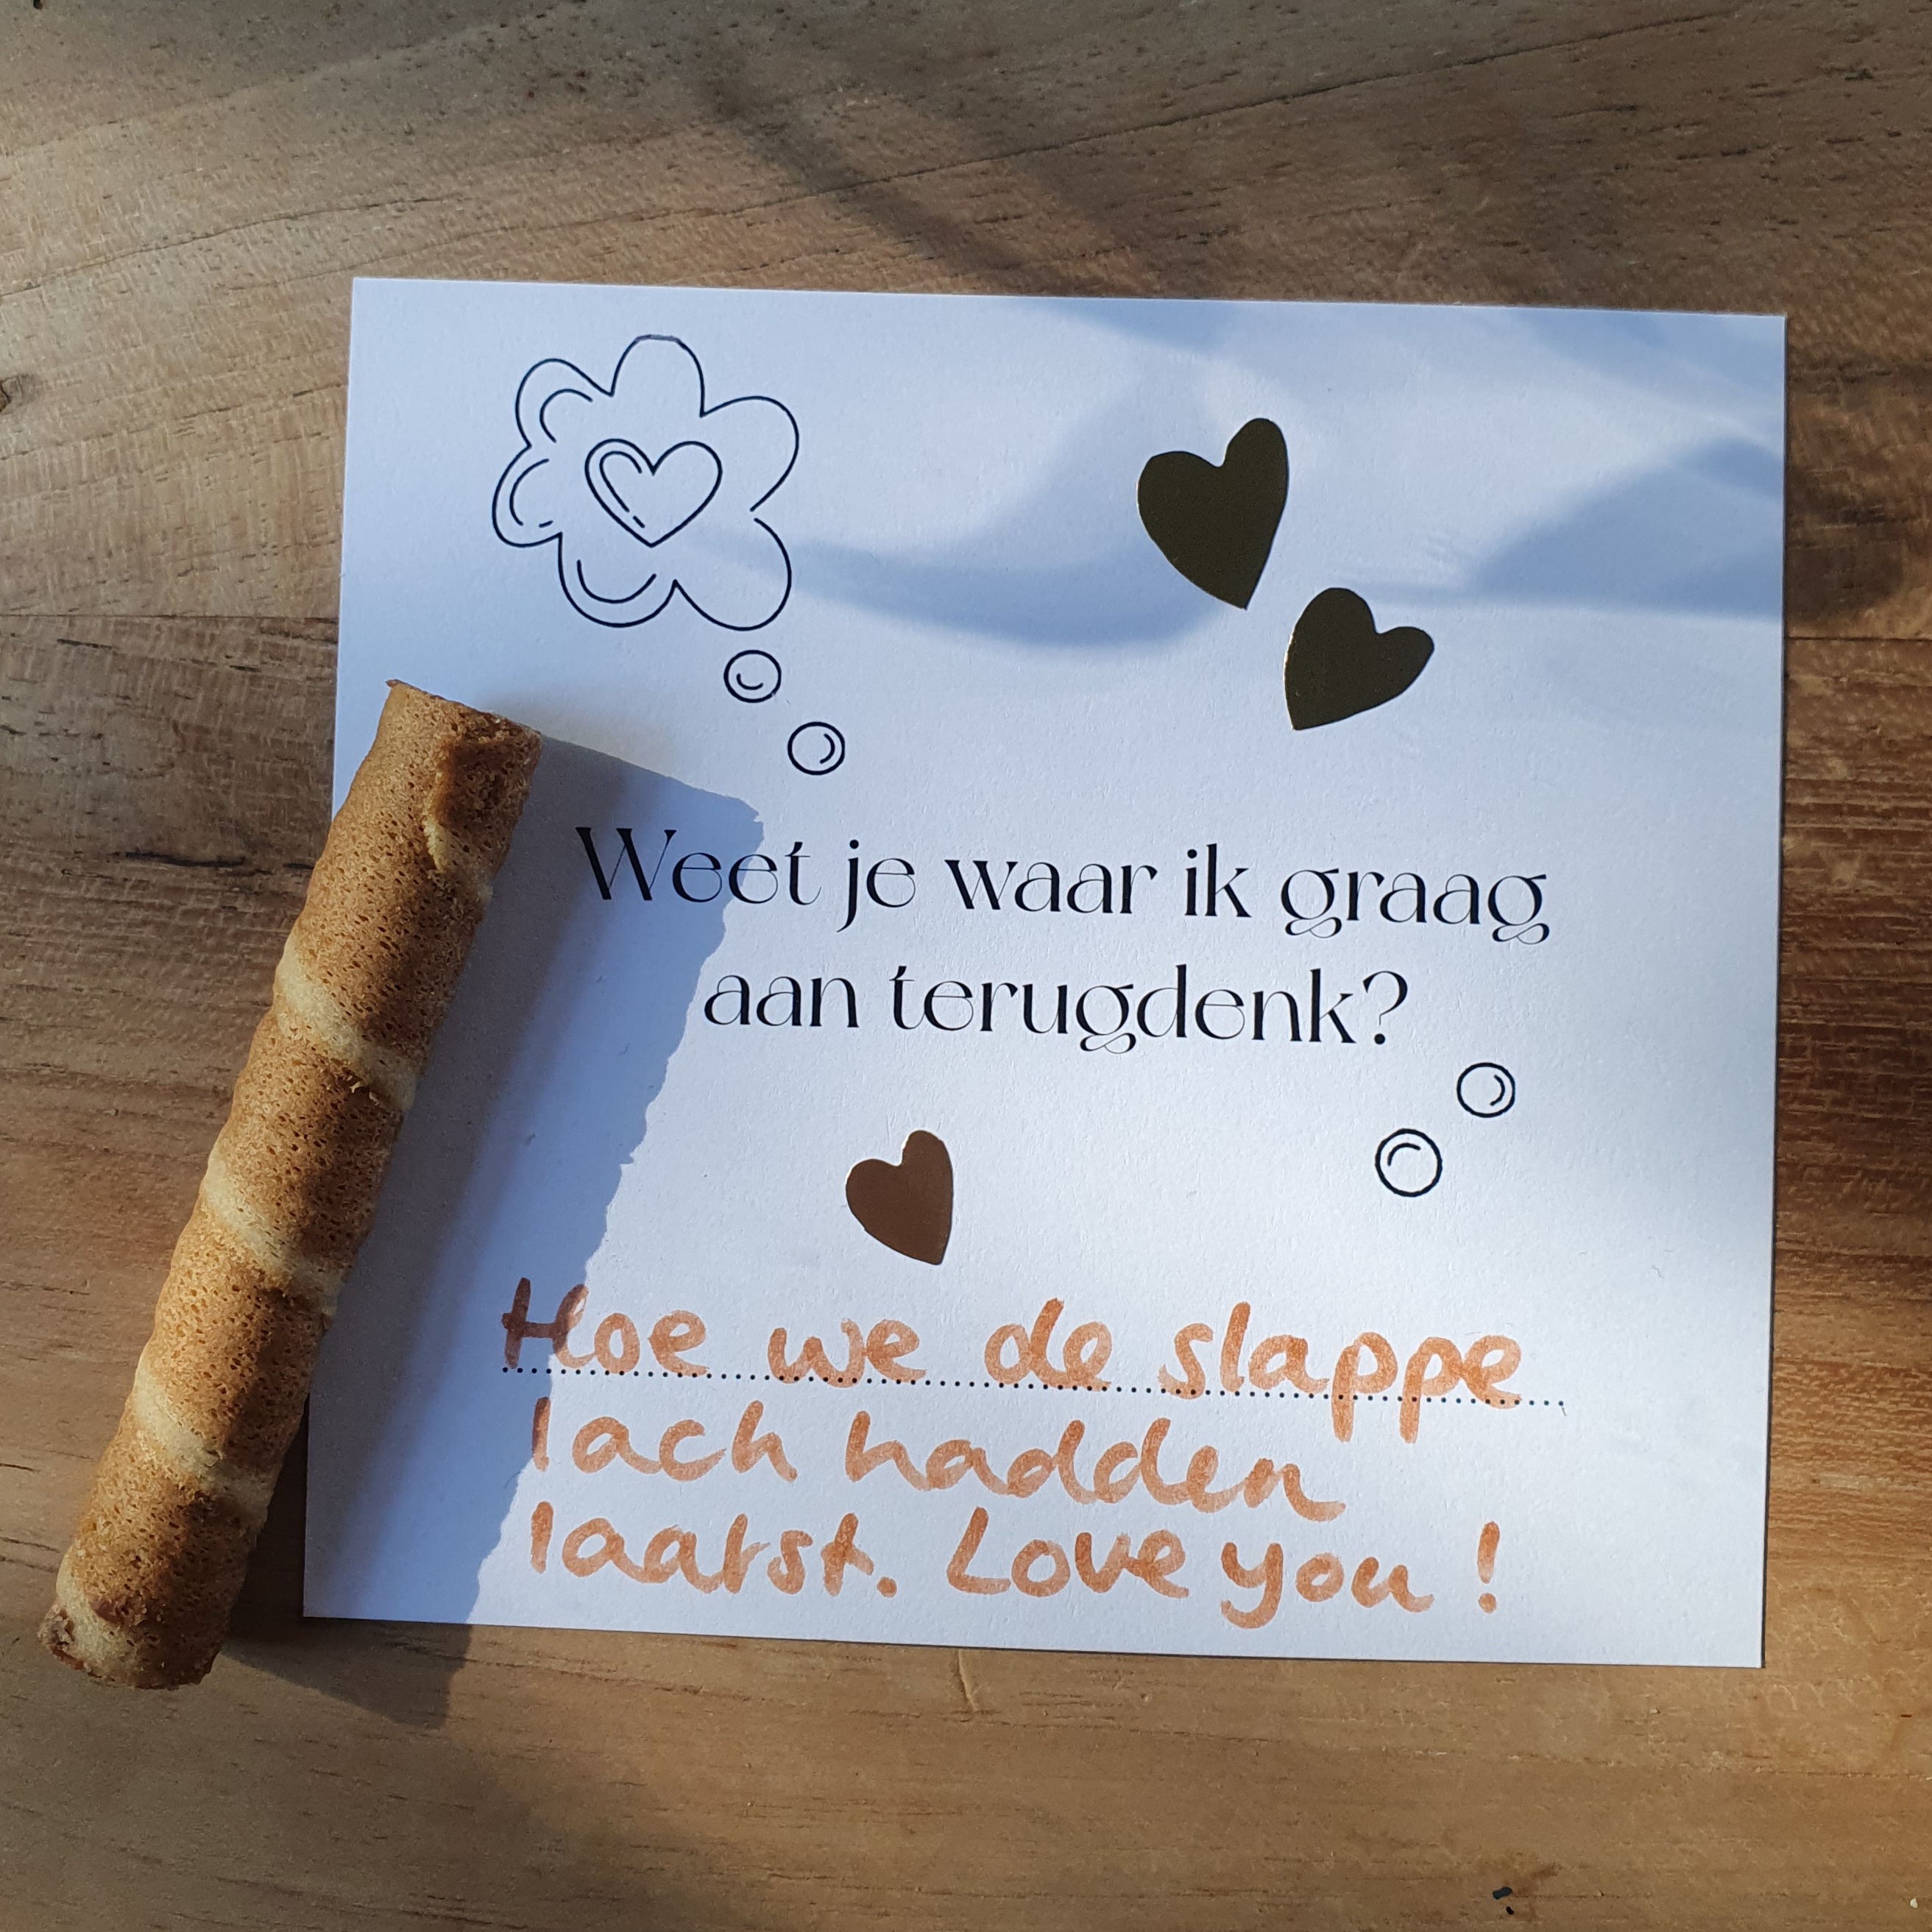 Weet je waar ik graag
aan terugdenk?
Hoe we de slappe
lach hadden
laatst. Love you!